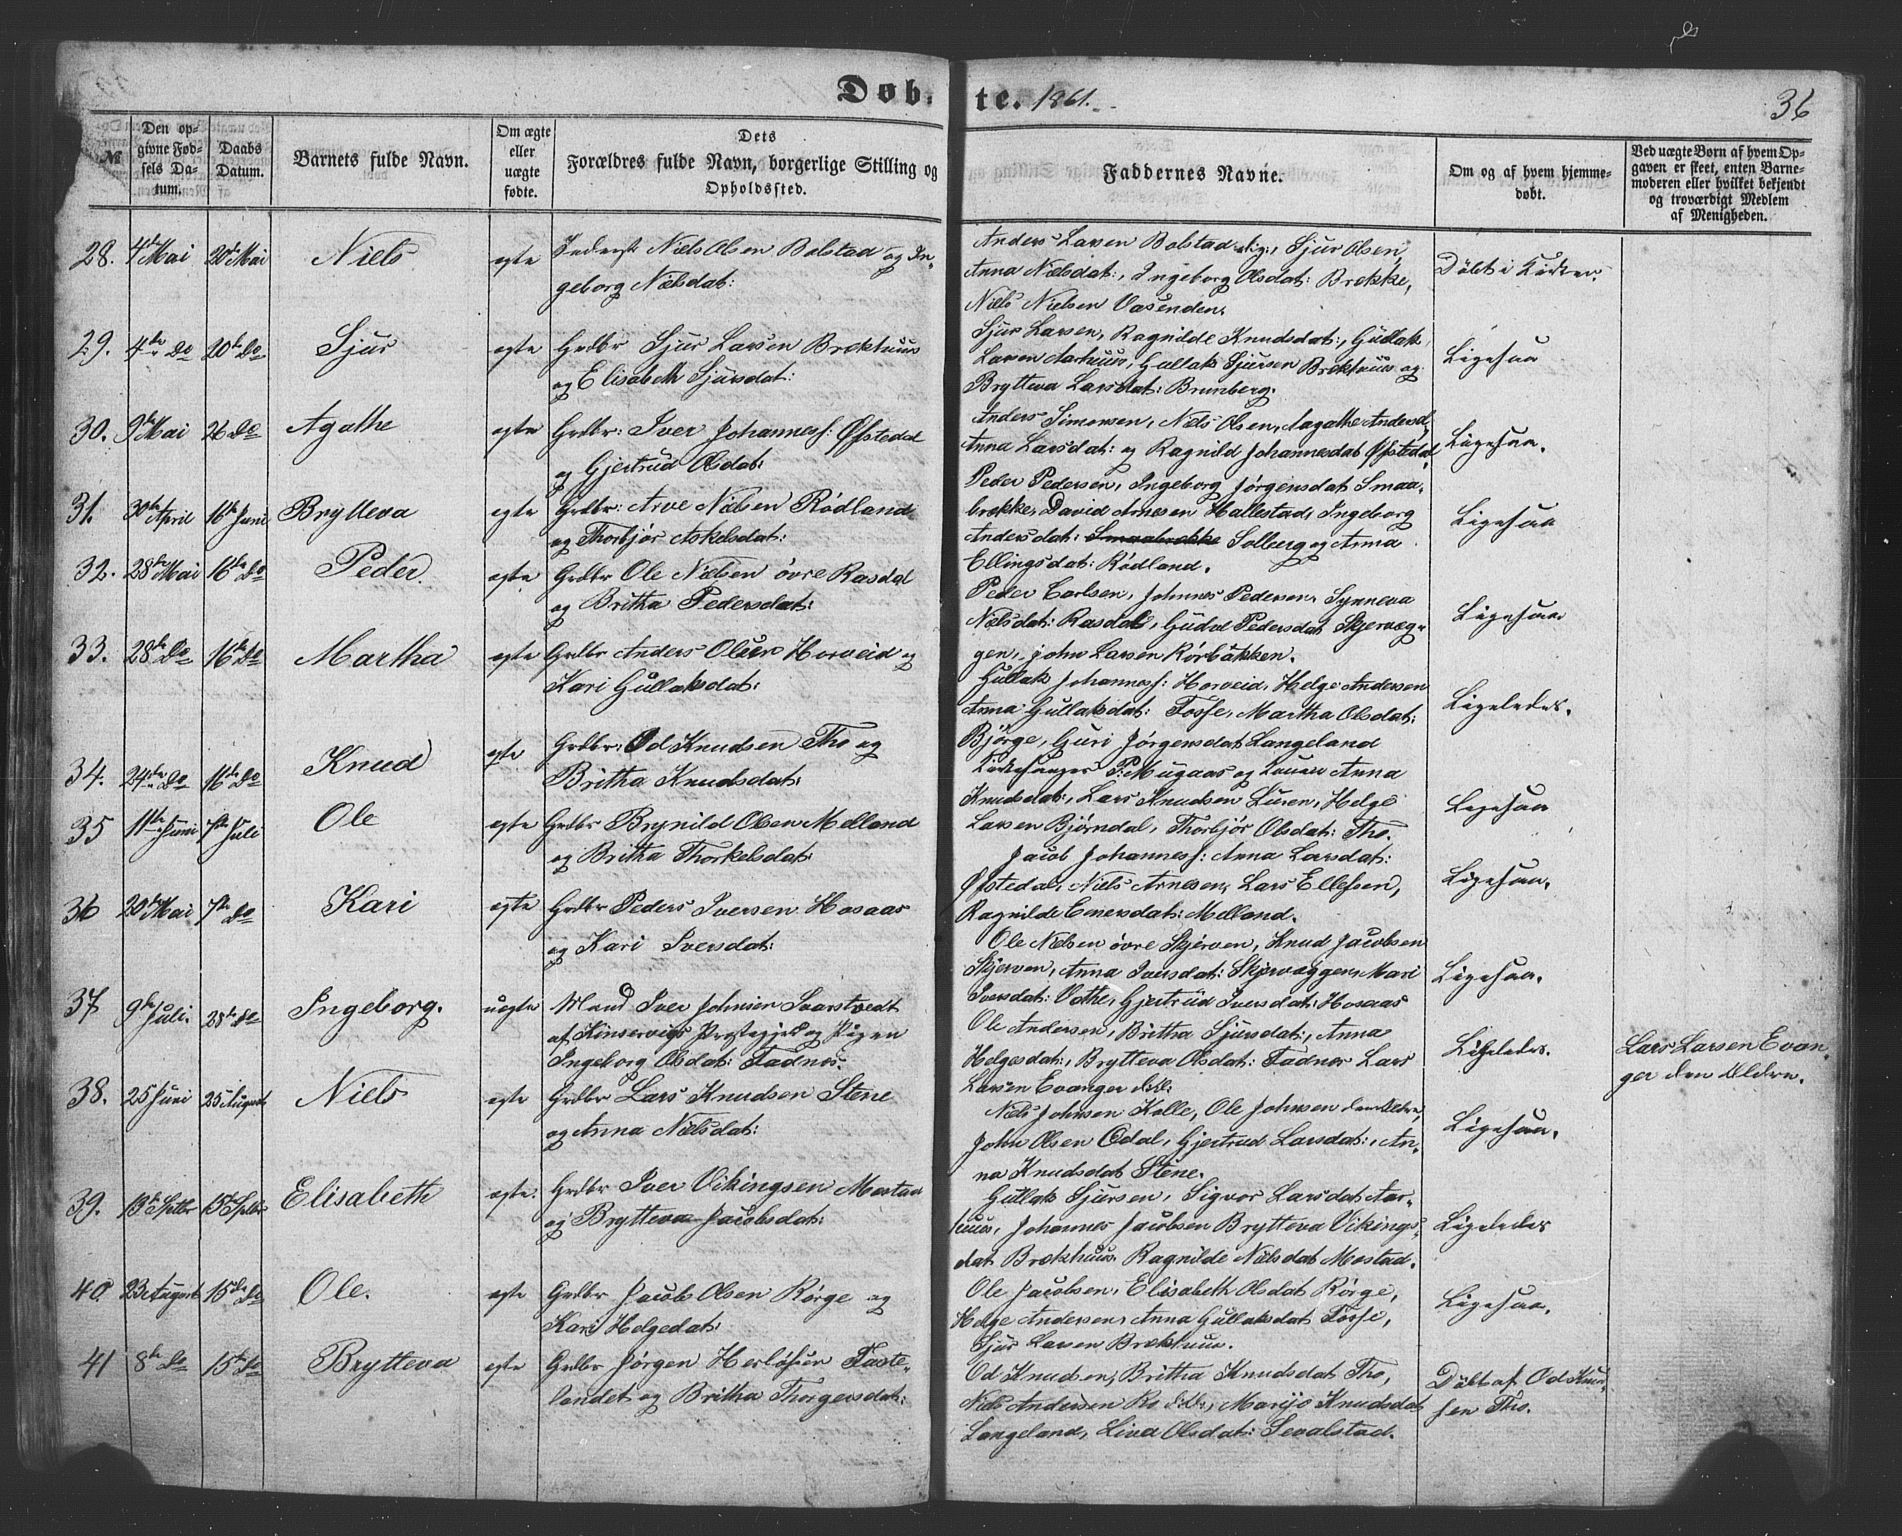 Døb-te. 1861.
36
№
Den opgivne Fødsels Datum.
Daabs Datum.
Barnets fulde Navn.
Om ægte eller uægte fødte.
Dets Forældres fulde Navn, borgerlige Stilling og Opholdssted.
Faddernes Navne.
Om og af hvem hjemmedøbt.
Ved uægte Børn af hvem Opgaven er skeet, enten Barnemoderen eller hvilket bekjendt og troværdigt Medlem af Menigheden.
28. 4de Mai 20de Mai Niels ægte
Inderst Niels Olsen Bolstad og In-
geborg Nielsdat:
Anders Larsen Bolstad, Sjur Olsen,
Anna Nielsdat:, Ingeborg Olsdat: Brekke,
Niels Nielsen Vasenden.
Døbt i Kirken.
29. 4de do 20de do Sjur ægte
Grdbr Sjur Larsen Brekhuus
og Elisabeth Sjursdat:
Sjur Larsen, Ragnilde Knudsdat:, Gullak
Larsen Aarhuus, Gullak Sjursen Brekhuus og
Brytteva Larsdat: Brunberg.
Ligesaa
30. 9de Mai 26 do Agathe ægte
Grdbr: Iver Johannesf: Øfstedal
og Gjertrud Olsdat:
Anders Simonsen, Niels Olsen, Aagathe Andersd,
Anna Larsdat: og Ragnild Johannesdat Øfstedal.
Ligesaa.
31. 30te April 16de Juni Brytteva ægte
Grdbr: Arve Nielsen Rødland
og Thorbjør Askelsdat:
Peder Pedersen, Ingeborg Jørgensdat Smaa-
brekke, David Arnesen Hallestad, Ingeborg
Andersdat: Smaabrekke Solberg og Anna
Ellingsdat: Rødland.
Ligesaa
32. 28de Mai 16de do Peder. ægte
Grdbr Ole Nielsen øvre Rasdal
og Britha Pedersdat:
Peder Carlsen, Johannes Pedersen, Synneva
Nielsdat: Rasdal, Gudve Pedersdat Skjerveg-
gen, John Larsen Rørbakken.
Ligesaa
33. 28de do 16de do Martha ægte
Grdbr Anders Olsen Horveid og
Kari Gullaksdat:
Gullak Johannesf: Horveid, Helge Andersen
Anna Gullaksdat: Fosse, Martha Olsdat:
Bjørge, Guri Jørgensdat Langeland
Ligeledes.
34. 24de do 16de do Knud ægte
Grdbr: Od Knudsen Tho og
Britha Knudsdat:
Kirkesanger P. Mugaas og Anna
Knudsdat:, Lars Knudsen Luren, Helge
Larsen Bjørndal, Thorbjør Olsdat: Tho.
Ligesaa
35 11te Juni 7de Juli Ole ægte
Grdbr Brynild Olsen Melland
og Britha Thorkelsdat:
Jacob Johannesf: Anna Larsdat:
Øfstedal, Niels Arnesen, Lars Ellefsen,
Ragnilde Emersdat: Melland.
Ligesaa.
36 20de Mai 7de do Kari ægte
Grdbr Peders Iversen Hosaas
og Kari Iversdat:
Ole Nielsen øvre Skjerven, Knud Jacobsen
Skjerven, Anna Iversdat: Skjerveggen, Mari
Iversdat: Vothe, Gjertrud Iversdat: Hosaas
Ligesaa.
37 9de Juli. 28de do Ingeborg. uægte
Mand Iver Johnsen
af Kinservigs Prestegjeld og Pigen
Ingeborg Olsdat: Fadnes.
Ole Andersen, Britha Sjursdat:, Anna
Helgesdat:, Brytteva Olsdat: Fadnes Lars
Larsen Evanger
Ligeledes.
Lars Larsen Evan-
ger den Eldre.
38. 25 Juni 25 August Niels ægte
Grdbr Lars Knudsen Stene
og Anna Nielsdat:
Niels Johnsen Kolle, Ole Johnsen den Eldre,
John Olsen Odal, Gjertrud Larsdat:, An-
na Knudsdat Stene.
Ligesaa.
39. 15de Sptbr Elisabeth ægte.
Grdbr Iver Vikingsen Mostad
og Brytteva Jacobsdat:
Gullak Sjursen, Sigvor Larsdat Aar-
huus, Johannes Jacobsen Brytteva Vikings-
dat Brekhuus. Ragnilde Nielsdat Mostad.
Ligeledes
40 23 August 15de do Ole. ægte
Grdbr Jacob Olsen Rørge og
Kari Helgedat:
Ole Jacobsen, Elisabeth Olsdat Rørge,
Helge Andersen, Anna Gullaksdat Fosse,
Sjur Larsen Brekhuus.
Ligesaa.
41 8de do 15de do Brytteva ægte
Grdbr Jørgen Faste-
landet og Britha Thorgersdat:
Od Knudsen, Britha Knudsdat Tho,
Niels Andersen, Marijo Knudsdat
Langeland, Liva Olsdat: Sevalstad.
Døbt af Od Knud-
sen Tho.